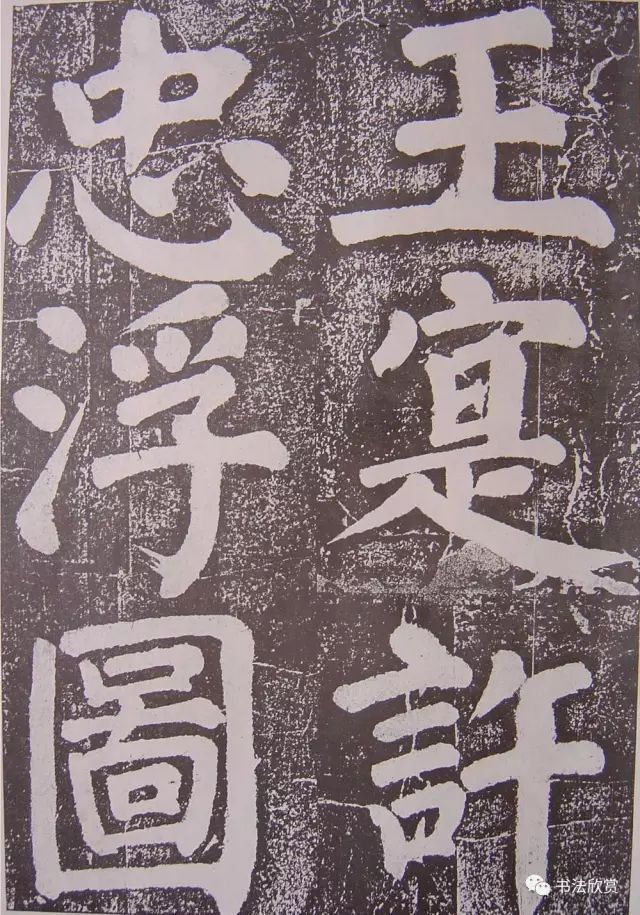 王寔許
忠浮圖
书法欣赏